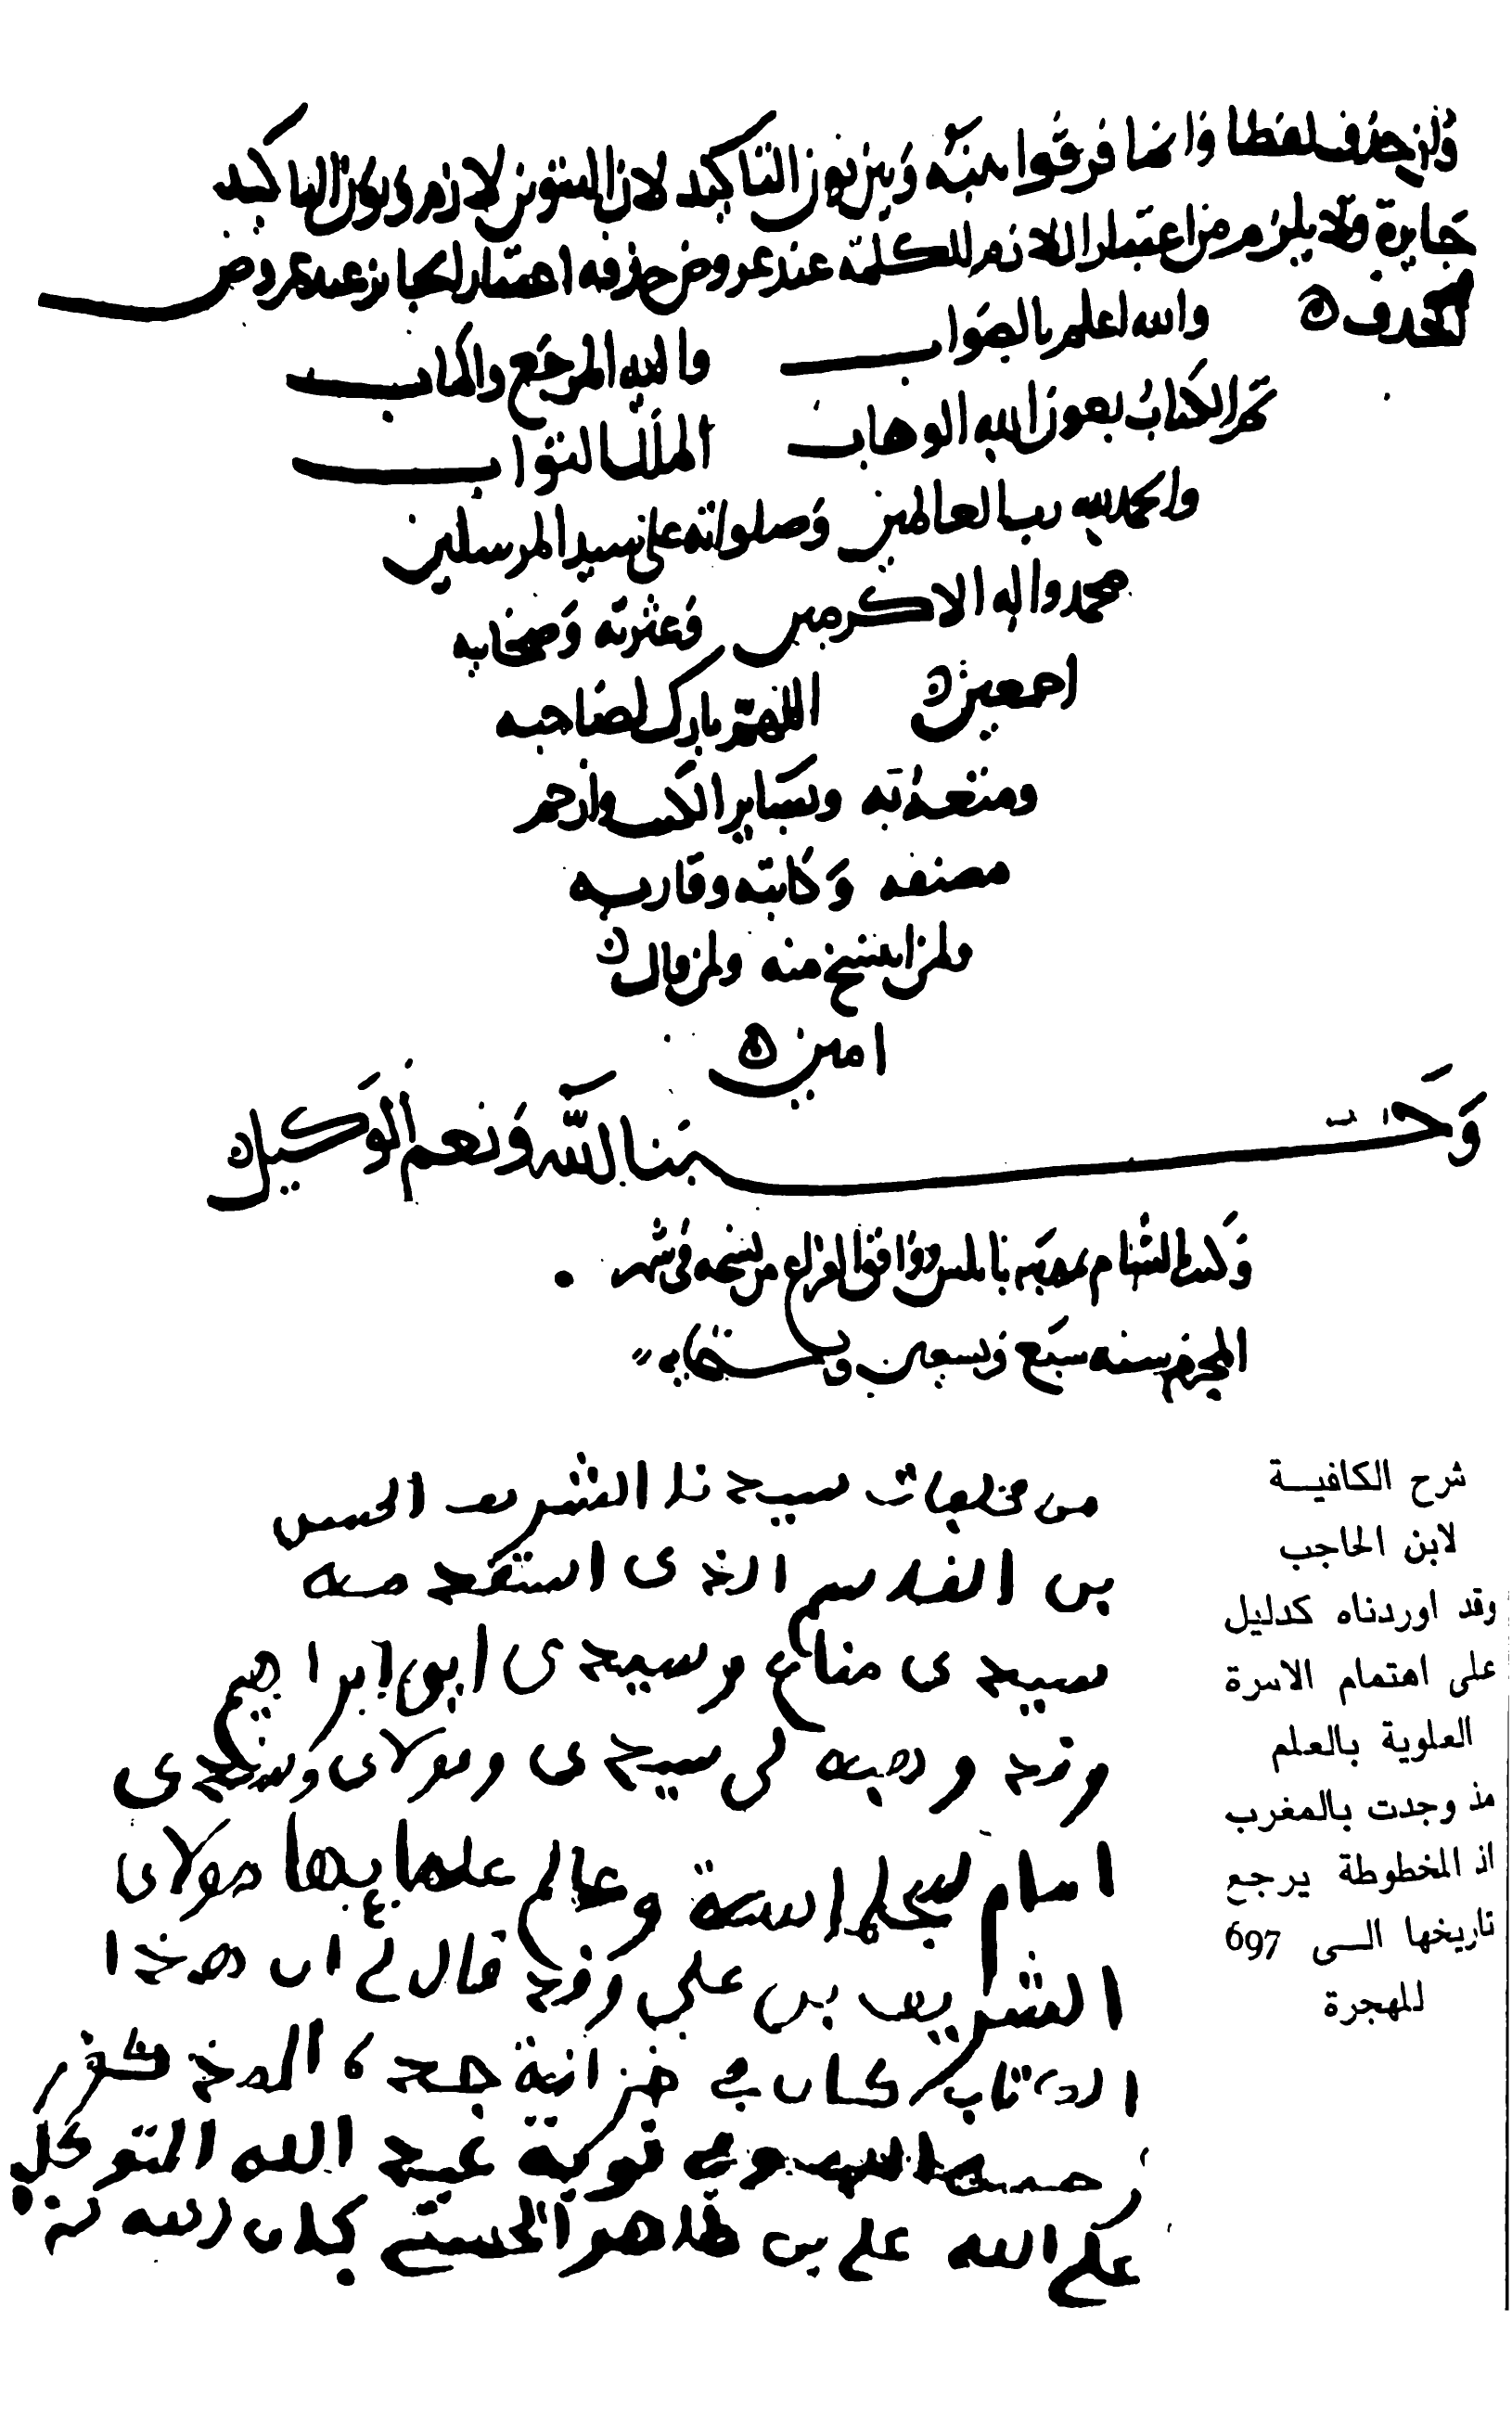 وان حذف لفظا وانما فرقوا بينه وبين نون التاكيد لان التنوين لازم ونون التاكيد
جايزة ولا يلزم من اعتبار اللازم للكلمة عند عروض حذفه اعتبار الجايز عند عروض
الحذف والله اعلم بالصواب واليه المرجع والماب
تم الكتاب بعون الله الوهاب الملك التواب
والحمد لله رب العالمين وصلواته على سيد المرسلين
محمد واله الاكرمين وعترته وصحابه
اجمعين اللهم بارك لصاحبه
ومنتفع به وبساير الكتب وارحم
مصنفه وكاتبه وقاريه
ولمن استنسخ منه ولمن قال
امين
وحسبنا الله ونعم الوكيل
وكتب بالشام بمدينة نابلس ووافق الفراغ من نسخه في شهر
المحرم سنه سبع وتسعين وستمايه
من مخلفات سيدنا الشريف الحسن
بن القاسم الذي استقدمه
سيدي مناع وسيدي ابو ابراهيم
وقد وهبه لي سيدي ومولاي وسندي
امام سجلماسة وعالم علمايها مولاي
الشريف بن علي وقد قال لي ان هذا
الكتاب كان في خزانة جده المذكور
علي بن طاهر الحسني كان الله له
شرح الكافيـة
لابن الحاجب
وقد اوردناه كدليل
على اهتمام الاسرة
العلوية بالعلم
مذ وجدت بالمغرب
اذ المخطوطة يرجع
تاريخها الـى 697
للهجرة